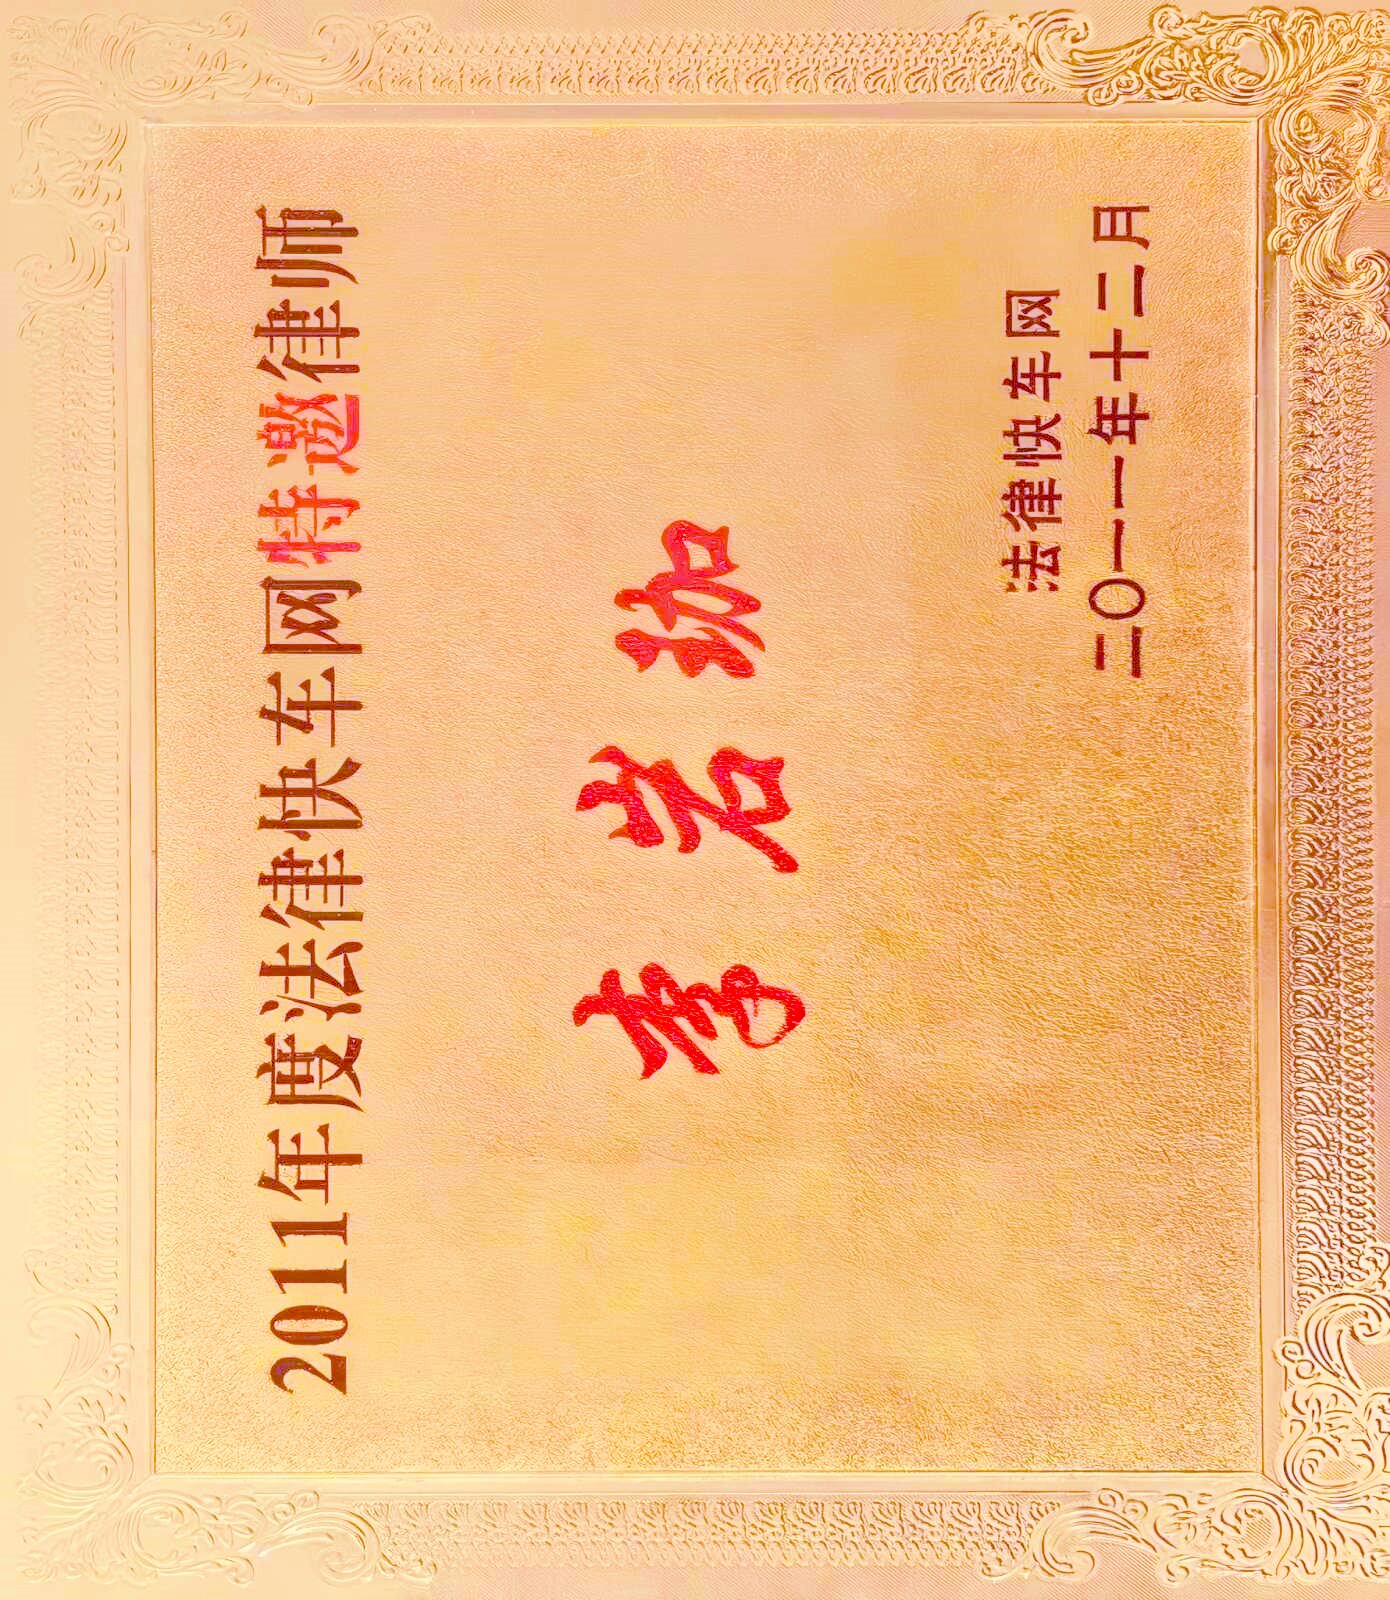 2011年度法律快车网特邀律师
李岩珈
法律快车网
二〇一一年十二月